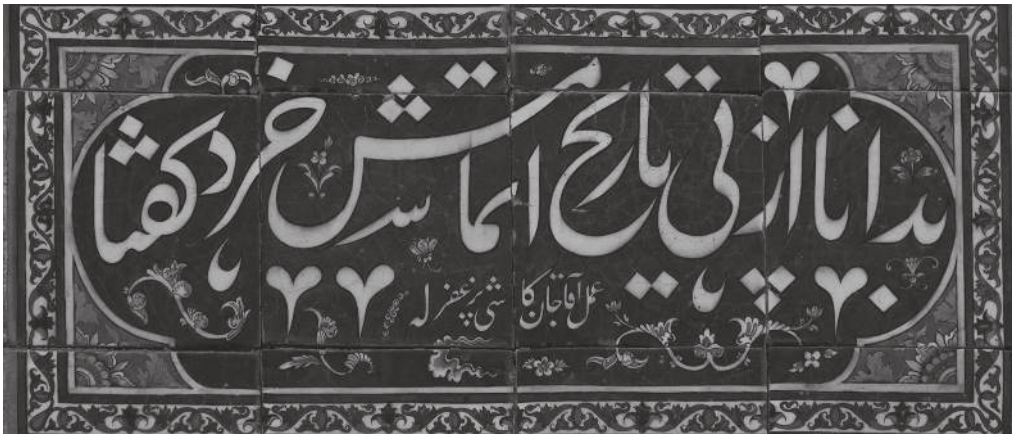 بدانا از پی تاریخ اتمامش خرد گفتا
عمل آقاجان کاشی پز غفر له